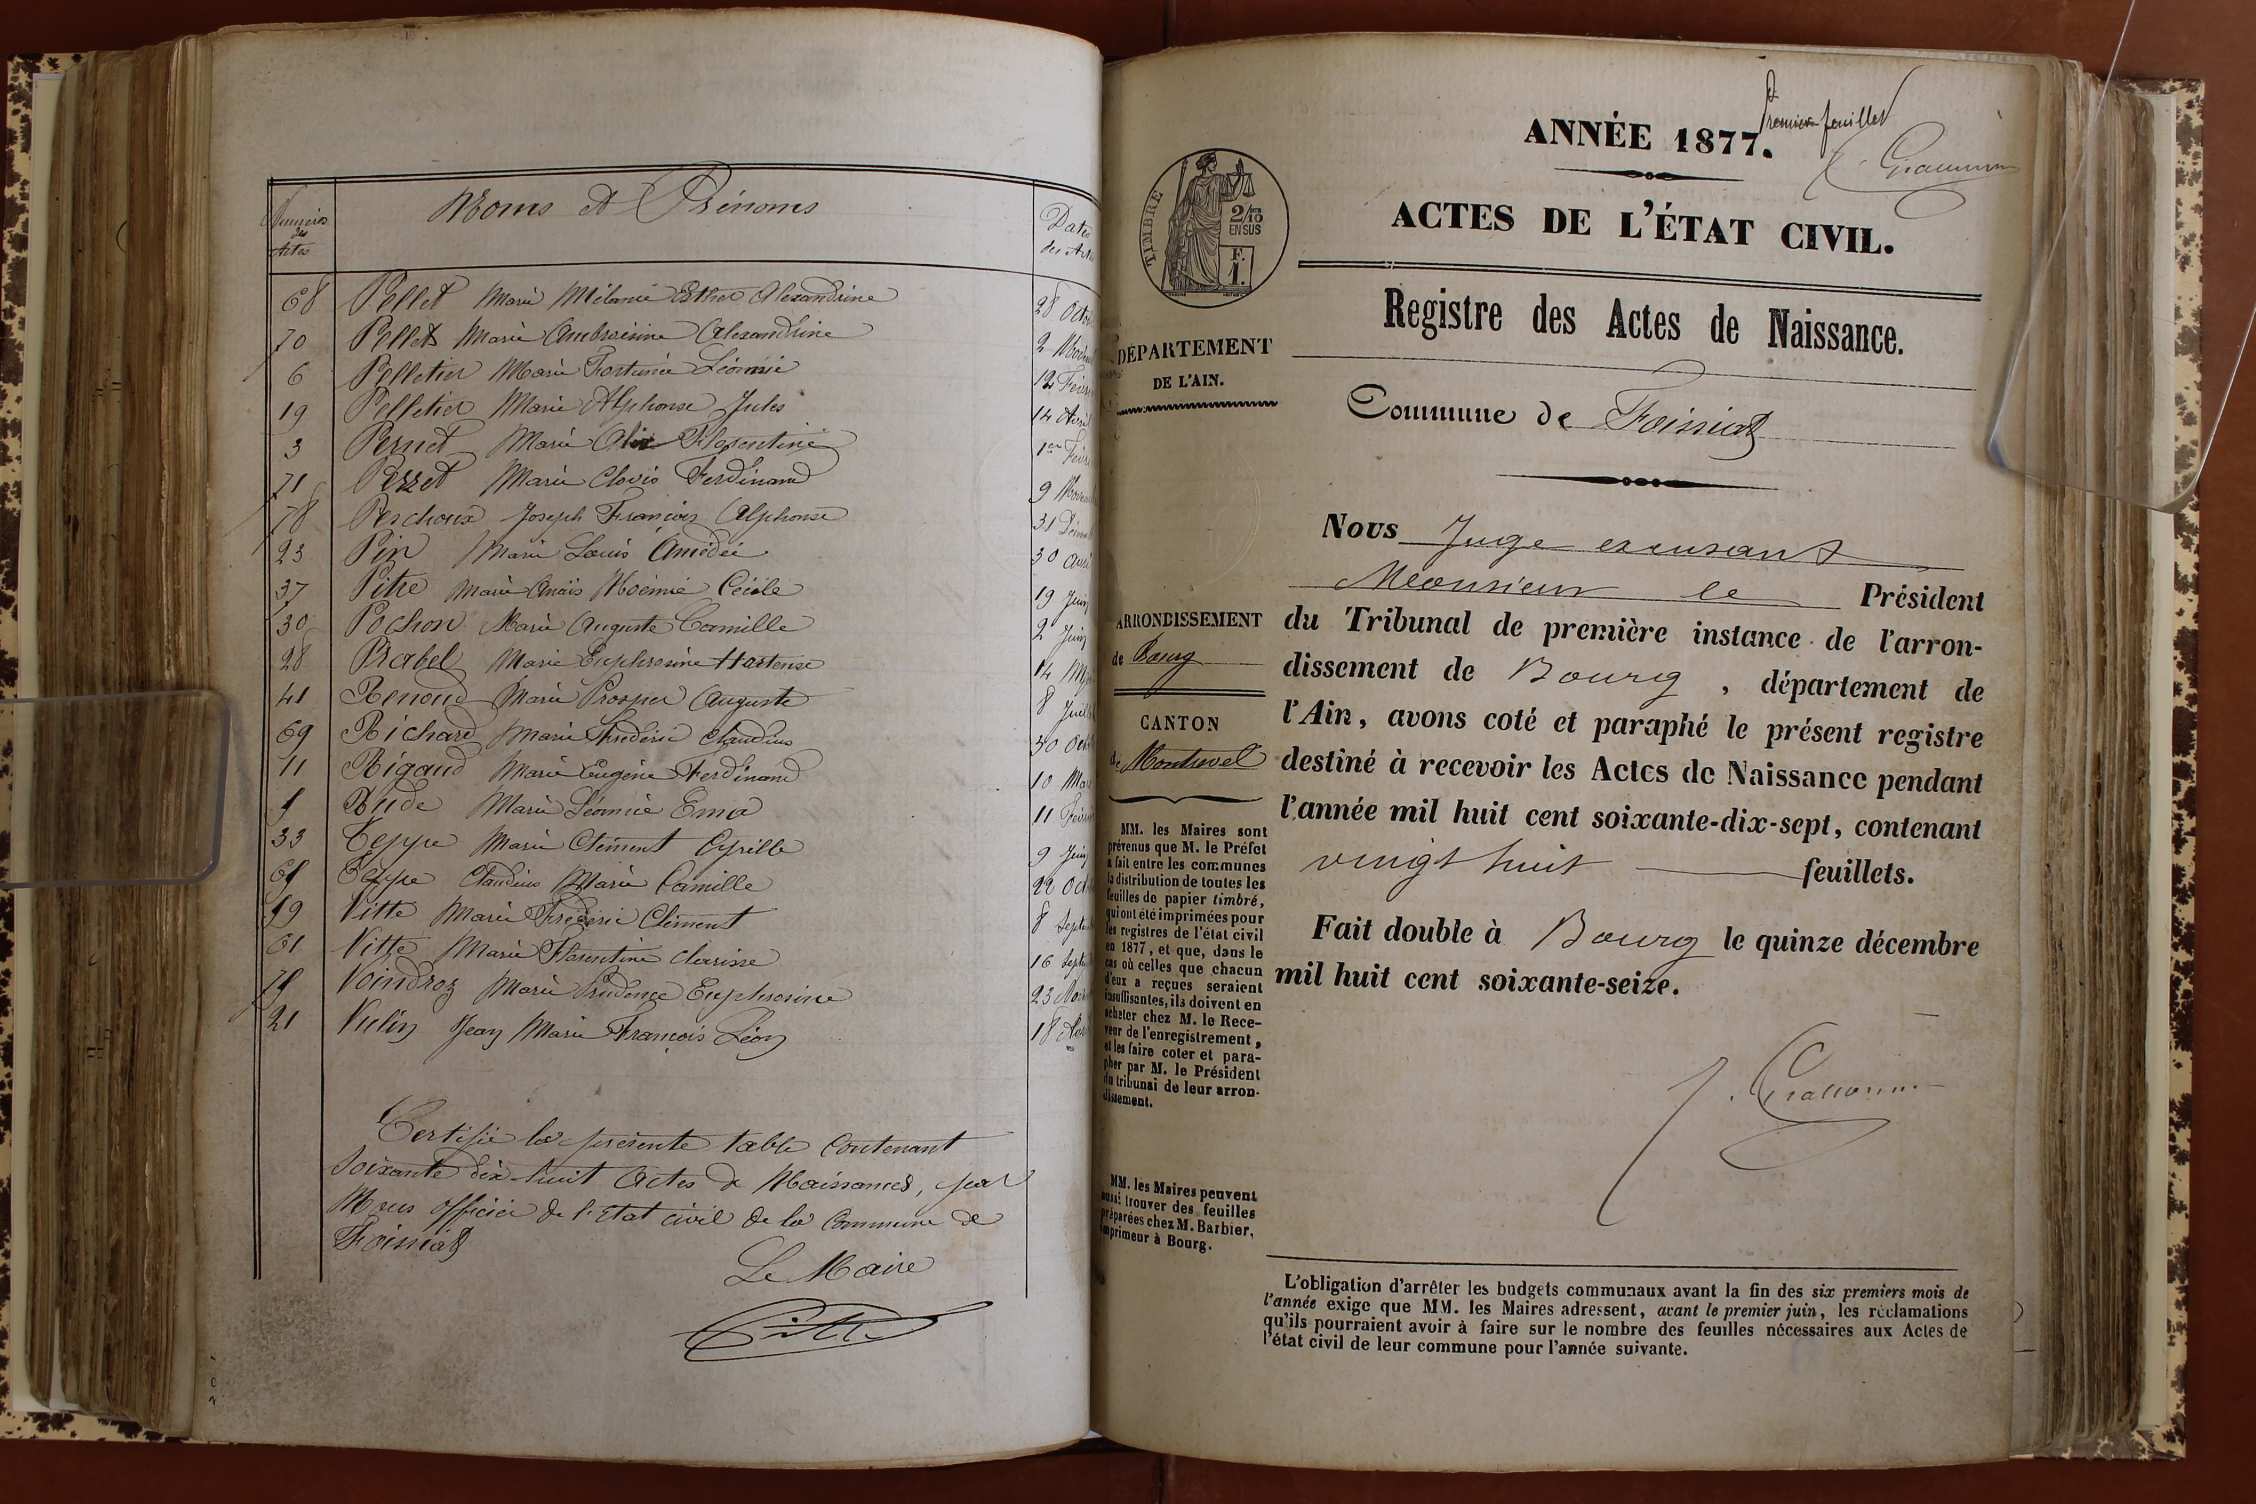 Numéros des Actes
Noms et Prénoms
Dates des Actes
68 Pellet Marie Mélanie Esther Alexandrine 28 Octo
70 Pellet Marie Ambroisine Alexandrine 2 Novem
6 Pelletier Marie Fortunée Léonie 12 Févri
19 Pelletier Marie Alphonse Jules 14 Avril
3 Pernet Marie Florentine 1er Févri
71 Perret Marie Clovis Ferdinand 9 Novem
78 Perchoux Joseph François Alphonse 31 Décem
23 Pin Marie Louis Amédée 30 Avril
37 Pitre Marie Anaïs Noémie Cécile 19 Juin
30 Pochon Marie Auguste Camille 2 Juin
28 Prabel Marie Euphrosine Hortense 14 Mai
41 Renoud Marie Prosper Auguste 8 Juillet
69 Richard Marie Frédéric Claudius 30 Octo
11 Rigaud Marie Eugène Ferdinand 10 Mar
Rude Marie Léonie Ema 11 Févri
33 Teppe Marie Clément Cyrille 9 Juin
Teppe Claudius Marie Camille 22 Octo
59 Vitte Marie Frédéric Clément 8 Septem
61 Vitte Marie Florentine Clarisse 16 Septem
Voindroz Marie Prudence Euphrosine 23 Nov
21 Vulin Jean Marie François Léon 18 Avril
Certifié la présente table contenant
soixante dix huit Actes de Naissances, par
Nous officier de l'Etat civil de la Commune de
Foissiat
Le Maire
Pitre
Premier feuillet
ANNÉE 1877.
ACTES DE L'ÉTAT CIVIL.
TIMBRE
2/10
EN SUS
F.
1.
Registre des Actes de Naissance.
DÉPARTEMENT
DE L'AIN.
Commune de Foissiat
Nous Juge excusant
Monsieur le Président
du Tribunal de première instance de l'arron-
dissement de Bourg, département de
l'Ain, avons coté et paraphé le présent registre
destiné à recevoir les Actes de Naissance pendant
l'année mil huit cent soixante-dix-sept, contenant
vingt huit feuillets.
Fait double à Bourg le quinze décembre
mil huit cent soixante-seize.
ARRONDISSEMENT
de Bourg
CANTON
de Montrevel
MM. les Maires sont
prévenus que M. le Préfet
a fait entre les communes
la distribution de toutes les
feuilles de papier timbré,
qui ont été imprimées pour
les registres de l'état civil
en 1877, et que, dans le
cas où celles que chacun
d'eux a reçues seraient
insuffisantes, ils doivent en
acheter chez M. le Rece-
veur de l'enregistrement,
et les faire coter et para-
pher par M. le Président
du tribunal de leur arron-
dissement.
MM. les Maires peuvent
aussi trouver des feuilles
préparées chez M. Barbier,
imprimeur à Bourg.
L'obligation d'arrêter les budgets communaux avant la fin des six premiers mois de
l'année exige que MM. les Maires adressent, avant le premier juin, les réclamations
qu'ils pourraient avoir à faire sur le nombre des feuilles nécessaires aux Actes de
l'état civil de leur commune pour l'année suivante.